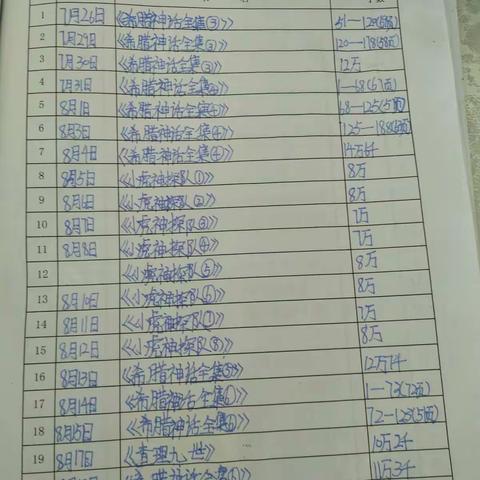 1 7月26日 《希腊神话全集③》 51—120
2 7月29日 《希腊神话全集③》 120—178(58页)
3 7月30日 《希腊神话全集③》 12万
4 7月31日 《希腊神话全集④》 1—68(67页)
5 8月1日 《希腊神话全集④》 68—125
6 8月3日 《希腊神话全集④》 125—188
7 8月4日 《希腊神话全集④》 14万6千
8 8月5日 《小虎神探队①》 8万
9 8月6日 《小虎神探队②》 8万
10 8月7日 《小虎神探队③》 7万
11 8月8日 《小虎神探队④》 7万
12 《小虎神探队⑤》 8万
13 8月10日 《小虎神探队⑥》 8万
14 8月11日 《小虎神探队⑦》 7万
15 8月12日 《小虎神探队⑧》 8万
16 8月13日 《希腊神话全集⑤》 12万1千
17 8月14日 《希腊神话全集⑥》 1—73(72页)
18 8月15日 《希腊神话全集⑥》 72—125
19 8月17日 《查理九世》 10万2千
《希腊神话全集⑥》 11万3千